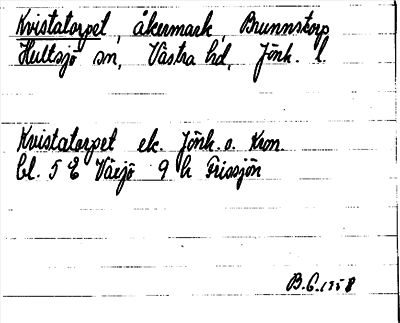 Kvistatorpet, åkermark, Brunnstorp
Hultsjö sn, Västra hd, Jönk. l.
Kvistatorpet ek. Jönk. o. Kron.
bl. 5 E Växjö 9 h Frissjön
B.G. 1958